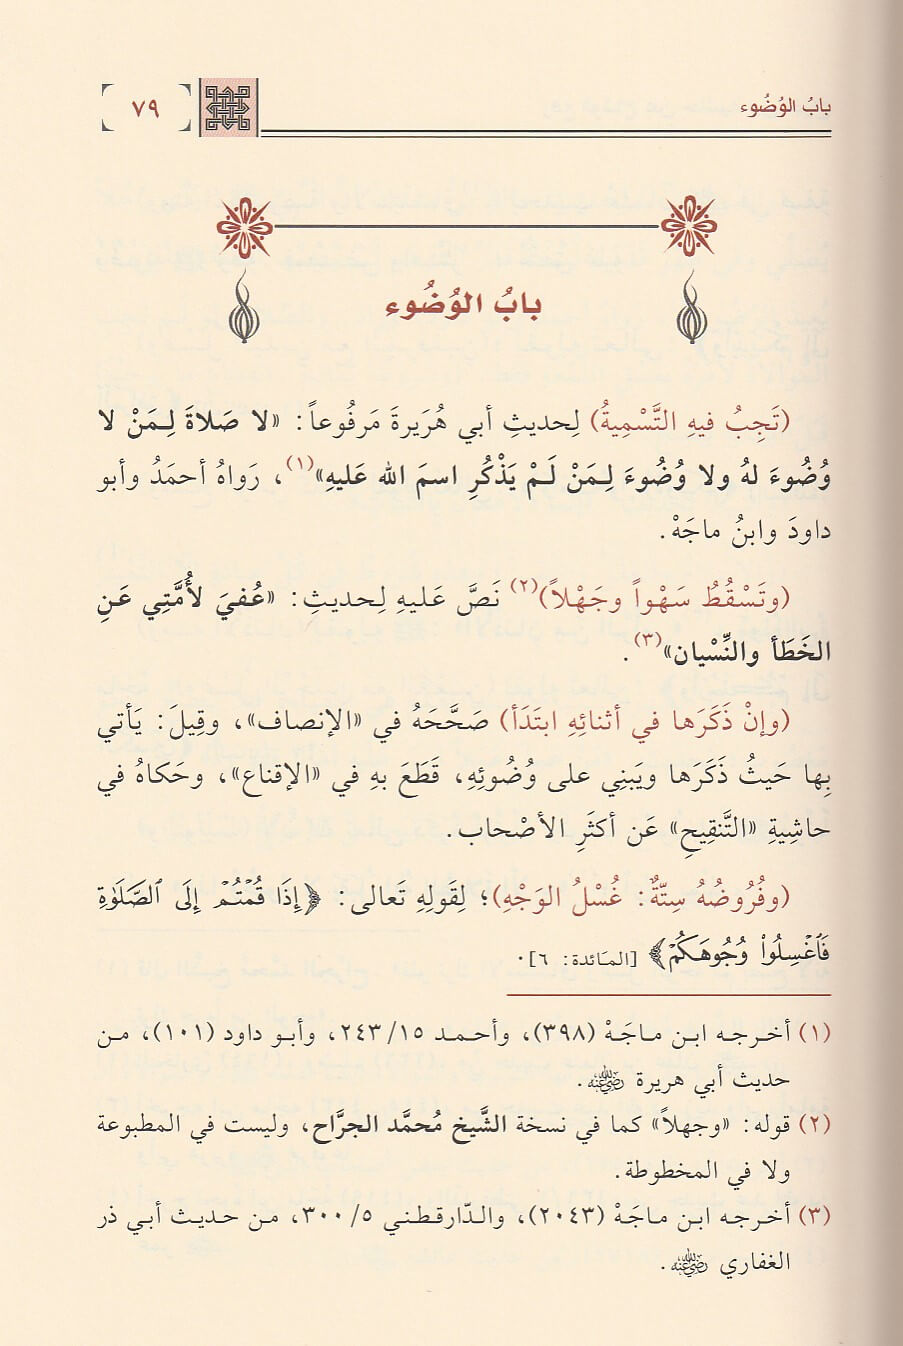 بابُ الوُضُوء
٧٩
بابُ الوُضُوء
(تَجِبُ فيهِ التَّسْمِيةُ) لِحديثِ أبي هُرَيرةَ مَرفُوعاً: «لا صَلاةَ لِـمَنْ لا
وُضُوءَ لهُ ولا وُضُوءَ لِـمَنْ لَمْ يَذْكُرِ اسمَ الله عَليهِ»(١)، رَواهُ أحمَدُ وأبو
داودَ وابنُ ماجَهْ.
(وتَسْقُطُ سَهْواً وجَهْلاً)(٢) نَصَّ عَليهِ لِحديثِ: «عُفيَ لأُمَّتِي عَنِ
الخَطَأ والنِّسْيان»(٣).
(وإنْ ذَكَرَها في أثنائِهِ ابتَدَأ) صَحَّحَهُ في «الإنصاف»، وقِيلَ: يَأتي
بِها حَيثُ ذَكَرَها ويَبنِي على وُضُوئِهِ، قَطَعَ بهِ في «الإقناع»، وحَكاهُ في
حاشِيةِ «التَّنقِيحِ» عَن أكثَرِ الأصْحاب.
(وفُرُوضُهُ سِتّةٌ: غُسْلُ الوَجْهِ)؛ لِقَولِهِ تَعالى: ﴿إِذَا قُمۡتُمۡ إِلَى ٱلصَّلَوٰةِ
فَٱغۡسِلُواْ وُجُوهَكُمۡ﴾ [المائدة: ٦].
(١) أخـرجـه ابـن مـاجَـهْ (٣٩٨)، وأحـمـد ١٥/ ٢٤٣، وأبـو داود (١٠١)، مـن
حديث أبي هريرة رضي الله عنه.
(٢) قوله: «وجهلاً» كما في نسخة الشَّيخ مُحمَّد الجرَّاح، وليست في المطبوعة
ولا في المخطوطة.
(٣) أخـرجـه ابـن مـاجَـهْ (٢٠٤٣)، والـدّارقـطـني ٥/ ٣٠٠، مـن حـديـث أبـي ذر
الغفاري رضي الله عنه.